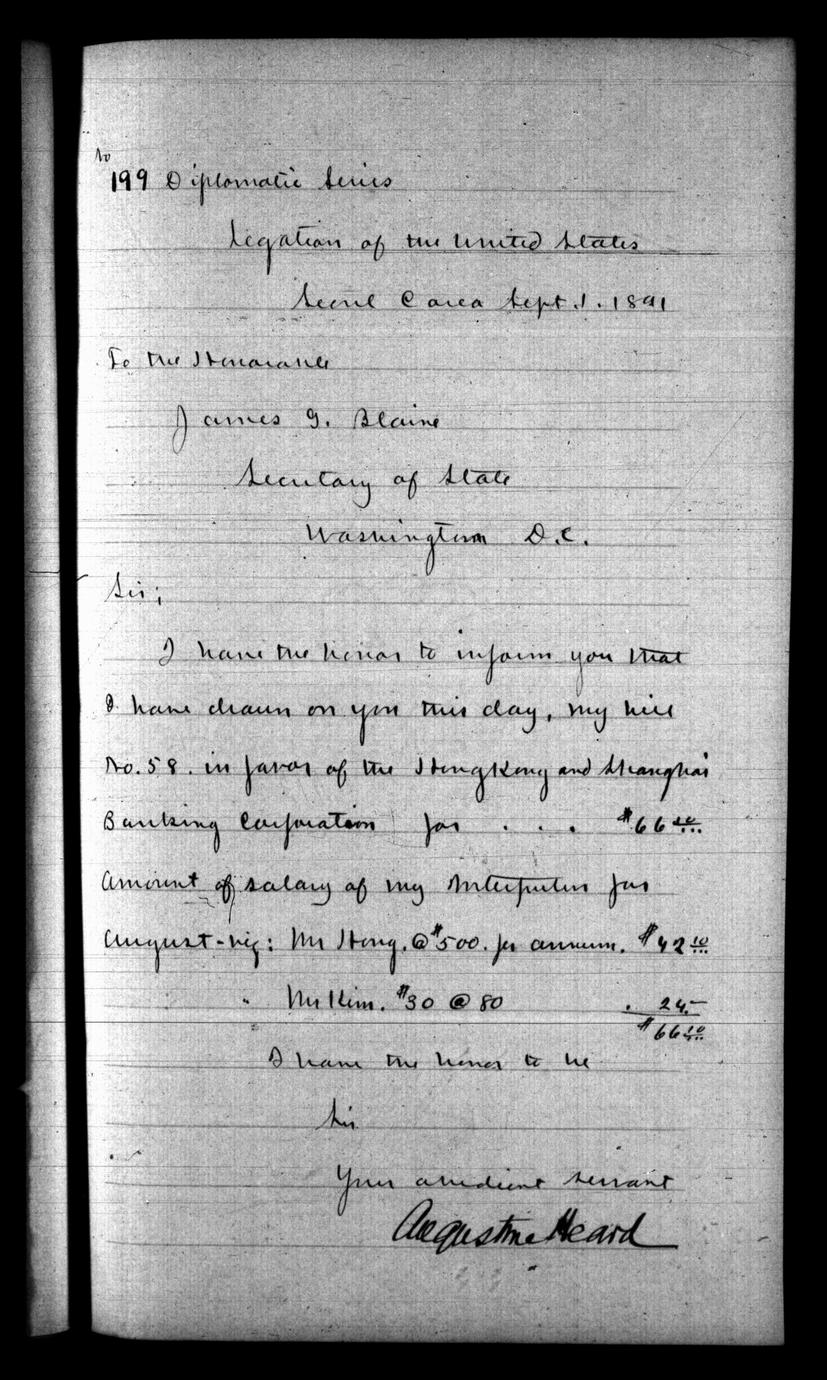 No
199 Diplomatic Series
Legation of the United States
Seoul Corea Sept. 1. 1891
To the Honorable
James G. Blaine
Secretary of State
Washington D.C.
Sir;
I have the honor to inform you that
I have drawn on you this day, my bill
No. 58. in favor of the HongKong and Shanghai
Banking Corporation for . . . $66 10/..
Amount of salary of my Interpreters for
August - viz: Mr Hong. @ $500. per annum. $42 10/..
" Mr Kim. $30 @ 80 . 24.-
$66 10/..
I have the honor to be
Sir
Your obedient servant
Augustine Heard